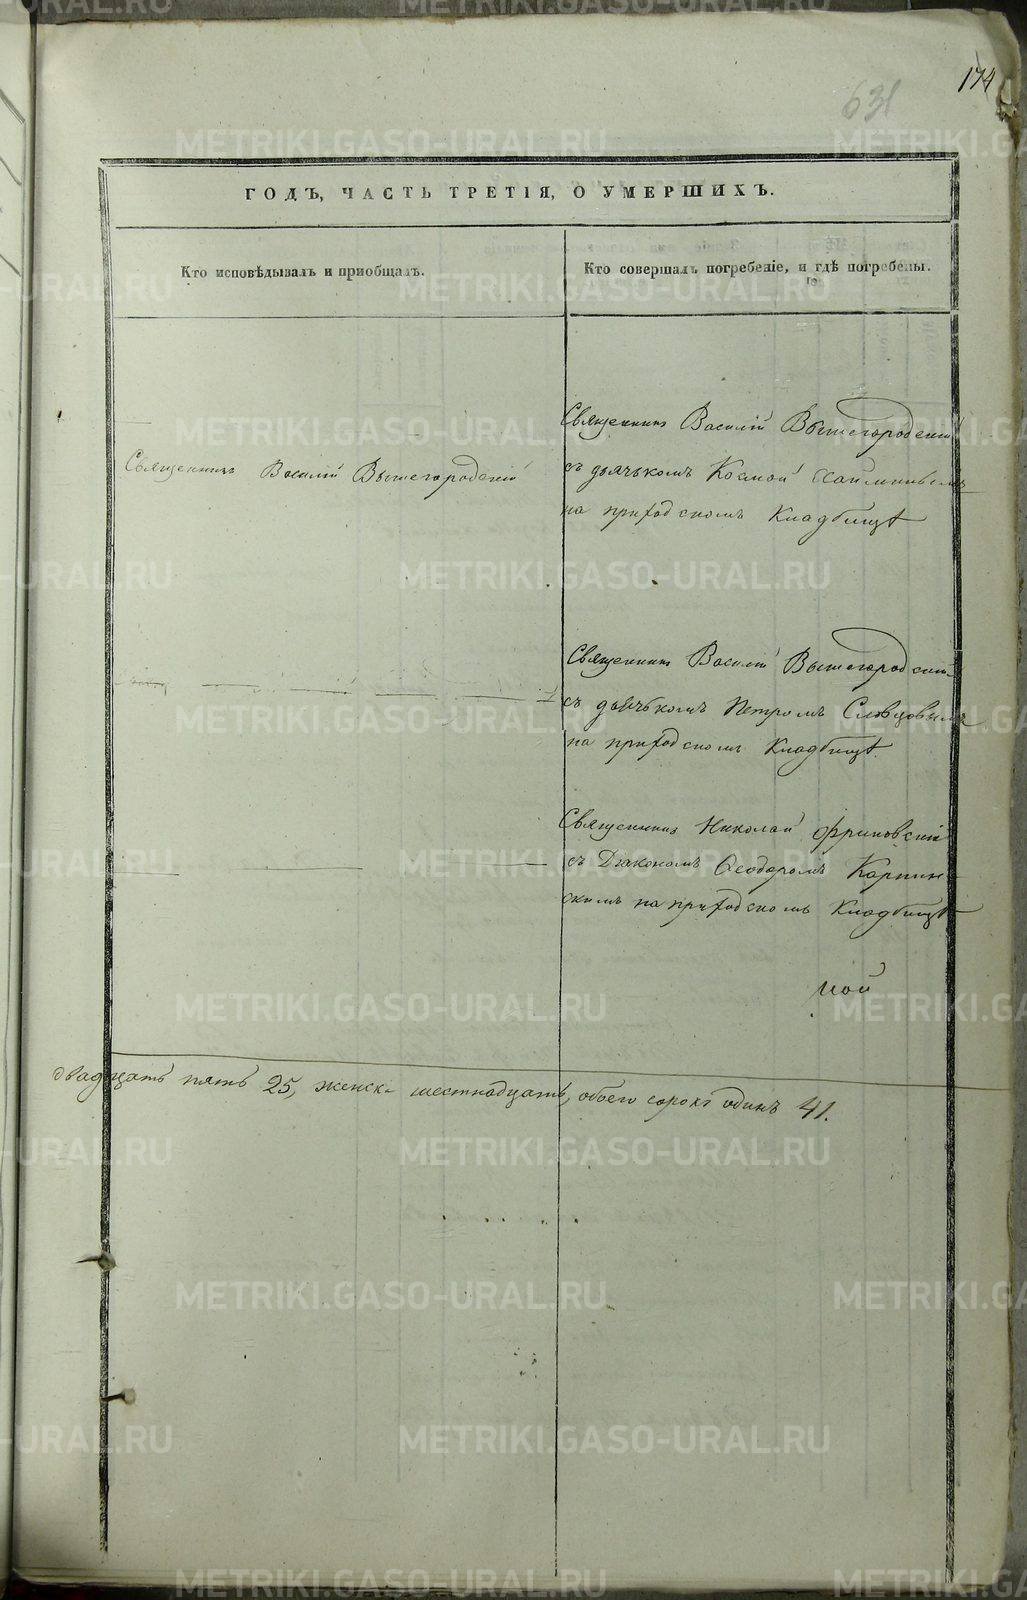 174
631
ГОДЪ, ЧАСТЬ ТРЕТІЯ, О УМЕРШИХЪ.
Кто исповѣдывалъ и пріобщалъ.
Кто совершалъ погребеніе, и гдѣ погребены.
Священникъ Василій Вышегородскій
Священникъ Василій Вышегородскій
съ дьячькомъ Космой
на приходскомъ кладбищѣ
Священникъ Василій Вышегородскій
съ дьячькомъ Петромъ Словцовымъ
на приходскомъ кладбищѣ.
Священникъ Николай Фриновскій
съ Діакономъ Ѳеодоромъ Карпин-
скимъ на приходскомъ кладбищѣ
мой
двадцать пять 25, женск- шестнадцать, обоего сорокъ одинъ 41.
METRIKI.GASO-URAL.RU